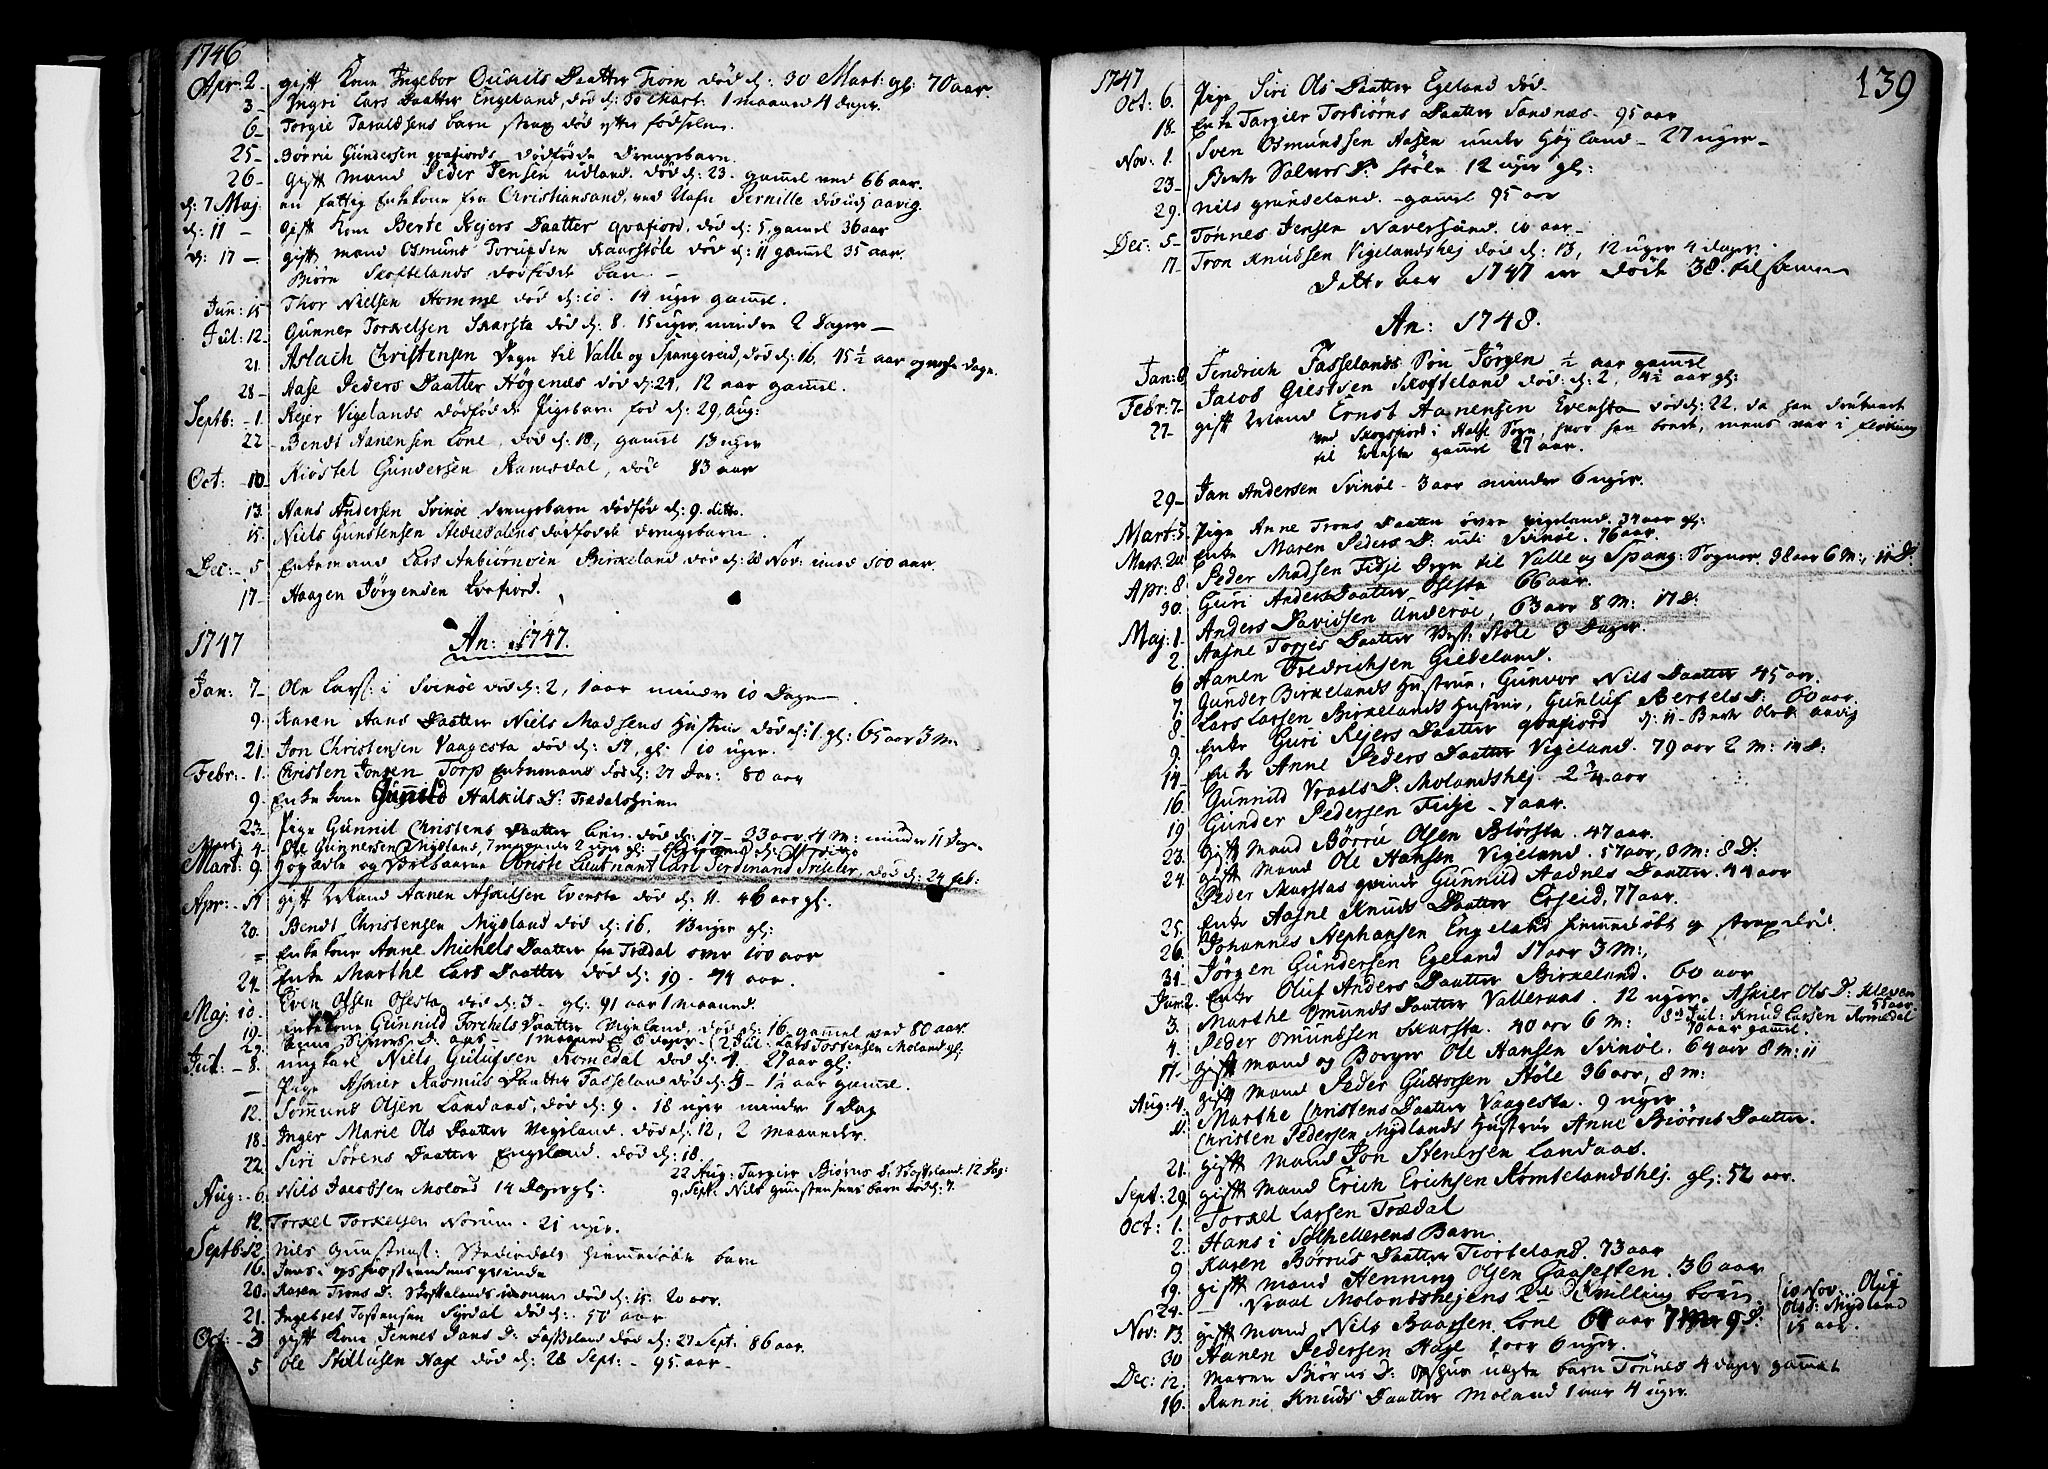 1746
Apr: 2 - gift Kone Ingebor Daatter Trom død d: 30 Mart: gl: 70 aar.
3 - Ingri Lars Daatter Engeland, død d: 30 Mart: 1 maaned 4 dager.
6 - Torgie Taraldsens barn strax død efter fødselen.
25 - Børrii Gundersen qvafiords dødfødde drengebarn.
26 - gift mand Peder Jensen udland. død d: 23. gammel ved 66 aar.
d: 7 Maj. en fattig Enkekone fra Christiansand, ved Nafn Pernille død aavig.
d: 11 - gift Kone Berte Rejers Daatter qvafiord, død d: 5, gamel 36 aar
d: 17 - gift mand Osmund Torupsen støle død d: 11 gammel 35 aar.
Biørn Skofteland dødfødde barn. -
Jun: 15 Thor Nielsen Homme død d: 10. 14 uger gammel.
Jul: 12. Gunner Torkelsen Skarsta død d: 8. 15 uger, mindre 2 Dager -
21. Aslach Christensen Degn til Valle og Spangereid, død d: 16. 45 1/2 aar og nogle dage.
28 - Aase Peders Daatter Høgenæs død d: 24, 12 aar gammel.
Septb: - 1. Rejer Vigelands dødfødde Pigebarn fød d: 29, Aug:
22 - Bendt Aanensen Lone, død d: 18, gammel 13 uger
Oct: - 10. Kiøstel Gundersen Ramsdal, død 83 aar
13. Hans Andersen Svinøe drengebarn dødfød d: 9. ditto.
15. Niels Gunstensen Stediedalens dødfødde drengebarn.
Dec: - 5 Enkemand Lars Anbiørnsen Birkeland død d: 28 Nov: imod 100 aar.
17 - Haagen Jørgensen Qvafiord.
1747 An: 1747.
Jan: 7 - Ole Lars: i Svinøe død d: 2, 1 aar mindre 10 Dage
9. Karen Hans Daatter Niels Madsens Hustrue død d: 1. gl: 65 aar 3 m:
21. Jon Christensen Vaagesta død d: 17, gl: 10 uger.
Febr: - 1. Christen Jonsen Torp Enkemand død d: 27 Jan: 80 aar
9. Enke kone Gunnild Halkils D: Trædals
23. Pige Gunnil Christens Daatter Lien. død d: 17 - 23 aar 4 M: mindre 11 Dage
Mart: 4. Ole Gunnersen Nydland, 7 maaneder 2 uger gl:
Mart: 9. Høyædle og Velbaarne Obriste Lieutnant Carl Ferdinand Triseler, død d: 24 feb:
Apr: - 17 gift Mand Aanen Askildsen Evensta død d: 11. 46 aar gl:
20. Bendt Christensen Nydland død d: 16, 13 uger gl:
= Enke kone Anne Michels Daatter fra Trædal over 100 aar
24. Enke Marthe Lars Daatter død d: 19 - 74 aar.
Maj: 10. Even Olsen Osesta død d: 3 - gl: 91 aar 1 maaned.
19. Enkekone Gunnild Torchels Daatter Vigeland, død d: 16 gammel ved 80 aar.
29. 1 maaned 8 dager - (2 Jul: Lars Tostensen Moland gl:
Jul: - 8. ung karl Niels Gulufsen Romedal død d: 4. 27 aar gl:
- Pige Askier Rasmus Daatter Fasseland død d: 9 - 1 1/2 aar gammel.
12. Sommund Olsen Landaas, død d: 9. 18 uger mindre 1 Dag
18. Inger Marie Ols Daatter Vegeland. død d: 12, 2 maaneder.
22. Siri Sørens Daatter Engeland. død d: 18.
22 Aug: Targier Biørns D. Skofteland. 12 Dag:
Aug: - 6. Nils Jacobsen Moland 14 Dager gl: 9 Sept: Nils Gunstensens barn død d: 7.
12. Torkel Torkelsen Norum. 21 uger.
Septb: 12. Nils Gunstens: Stediedals hiemmedøbte barn
16.
20. Karen Trons D. Skoftelands død d: 15. 20 aar.
21. Ingebret Tostensen Syrdal død d: 50 aar
Oct: - 3 gift Kone Jennes Jans D: Fasseland død d: 27 Sept: 86 aar.
5 Ole Hage død d: 28 Sept: - 95 aar -
139
1747
Oct: 6. Pige Siri Ols Daatter Egeland død.
18. Enke Targier Torbiørns Daatter Sandnæs - 95 aar
Nov: 1. Sven Osmundsen Aasen under Høyland - 27 uger -
23 - Berte Salves D. Støle 12 uger gl:
29. Nils grundeland. - gammel 95 aar
Dec: 5 - Tønnes Jensen Naversund. 10 aar -
17 - Tron Knudsen Vigelandshej død d: 13, 12 uger 4 dager.
Dette Aar 1747 er døde 38. tilsamen
An: 1748.
Jan: 6 Fendrich Fasselands Søn Jørgen 1/2 aar gamel
Febr: 7 - Jacob Giertsen Skofteland død: d: 2, 4 1/2 aar gl:
27. gift Mand Ernst Aanensen Evensta død d: 22, da han druknede
ved Skogsfiord i Halse Sogn, hvor han boede, mens var i
til Evensta gammel 27 aar.
29 - Jan Andersen Svinøe - 3 aar mindre 6 uger.
Mart: 5. Pige Anne Trons Daatter øvre vigeland. 34 aar gl:
Mart: 20. Enke Maren Peders D: udi Svinøe. 76 aar.
Apr: 8. Peder Madsen Fidje Degn til Valle og Spang: Sogner. 38 aar 6 M:, 11 D:
30. Guri Anders Daatter Osesta 66 aar.
Maj: 1. Anders Davidsen Underøe, 63 aar 8 M: 17 D:
2. Aasne Torjes Daatter Støle 3 Dager.
6 Aanen Fredrichsen Giedeland.
7. Gunder Birkelands Hustrue, Gunvor Nils Daatter 45 aar.
8. Lars Larsen Birkelands Hustrue, Gunluf Bertels D: 60 aar
9. Enke Guri Rejers Daatter qvafiord d: 11 - Berte Ols D aavig
14. Enke Anne Peders Daatter Vigeland. 79 aar 2 M: 14 D:
16. Gunnild Vraals D: Molandshej. 2 3/4 aar
19 Gunder Pedersen Fidje - 7 aar.
23. gift Mand Børrii Olsen Blørsta. 47 aar.
24. gift Mand Ole Hansen Vigeland. 57 aar, 8 M: 8 D:
Peder Marstas qvinde Gunnild Aadnes Daatter. 44 aar
25. Enke Aasne Knuds Daatter Erseid, 77 aar.
26. Johannes Stephansen Engeland hiemmedøbt og strax død.
31. Jørgen Gundersen Egeland 17 aar 3 M:,
Jun: 2. Enke Oluf Anders Daatter Birkeland. 60 aar
3. Marthe Omunds Daatter Valleraas. 12 uger. Askier Ols D: Kleven 55 aar
4. Peder Omundsen Skarsta. 40 aar 6 M: 8d Jul: Knud Larsen Romedal 70 aar gammel.
17. gift mand og Borger Ole Hansen Svinøe. 64 aar 8 M: 11
gift mand Peder Guttorsen Støle 36 aar, 8 M:
Aug: 4. Marthe Christens Daatter Vaagesta. 9 uger
11. Christen Pedersen Nydlands Hustrue Anne Biørns Daatter.
21. gift Mand Jon Stenersen Landaas.
Sept: 29. gift Mand Erich Erichsen Romtelandshej. gl: 52 aar.
Oct: 1. Torkel Larsen Trædal
2. Hans i Solhellerens Barn.
9 Karen Børrus Daatter Tiorteland. 73 aar
19. gift mand Henning Olsen Faasesten. 36 aar
24 - Vraal Molandshejens 2de tvilling børn. {10 Nov: Oluf
Nov: 13. gift mand Nils Baarsen Lone 64 aar 9 D. Ols D: Nydland
15 aar.
30 Aanen Pedersen Hage 1 aar 6 uger.
Dec: 12. Maren Biørns D: Opshus uægte barn Tønnes 4 dager gammel
16. Ranni Knuds Daatter Moland 1 aar 4 uger.